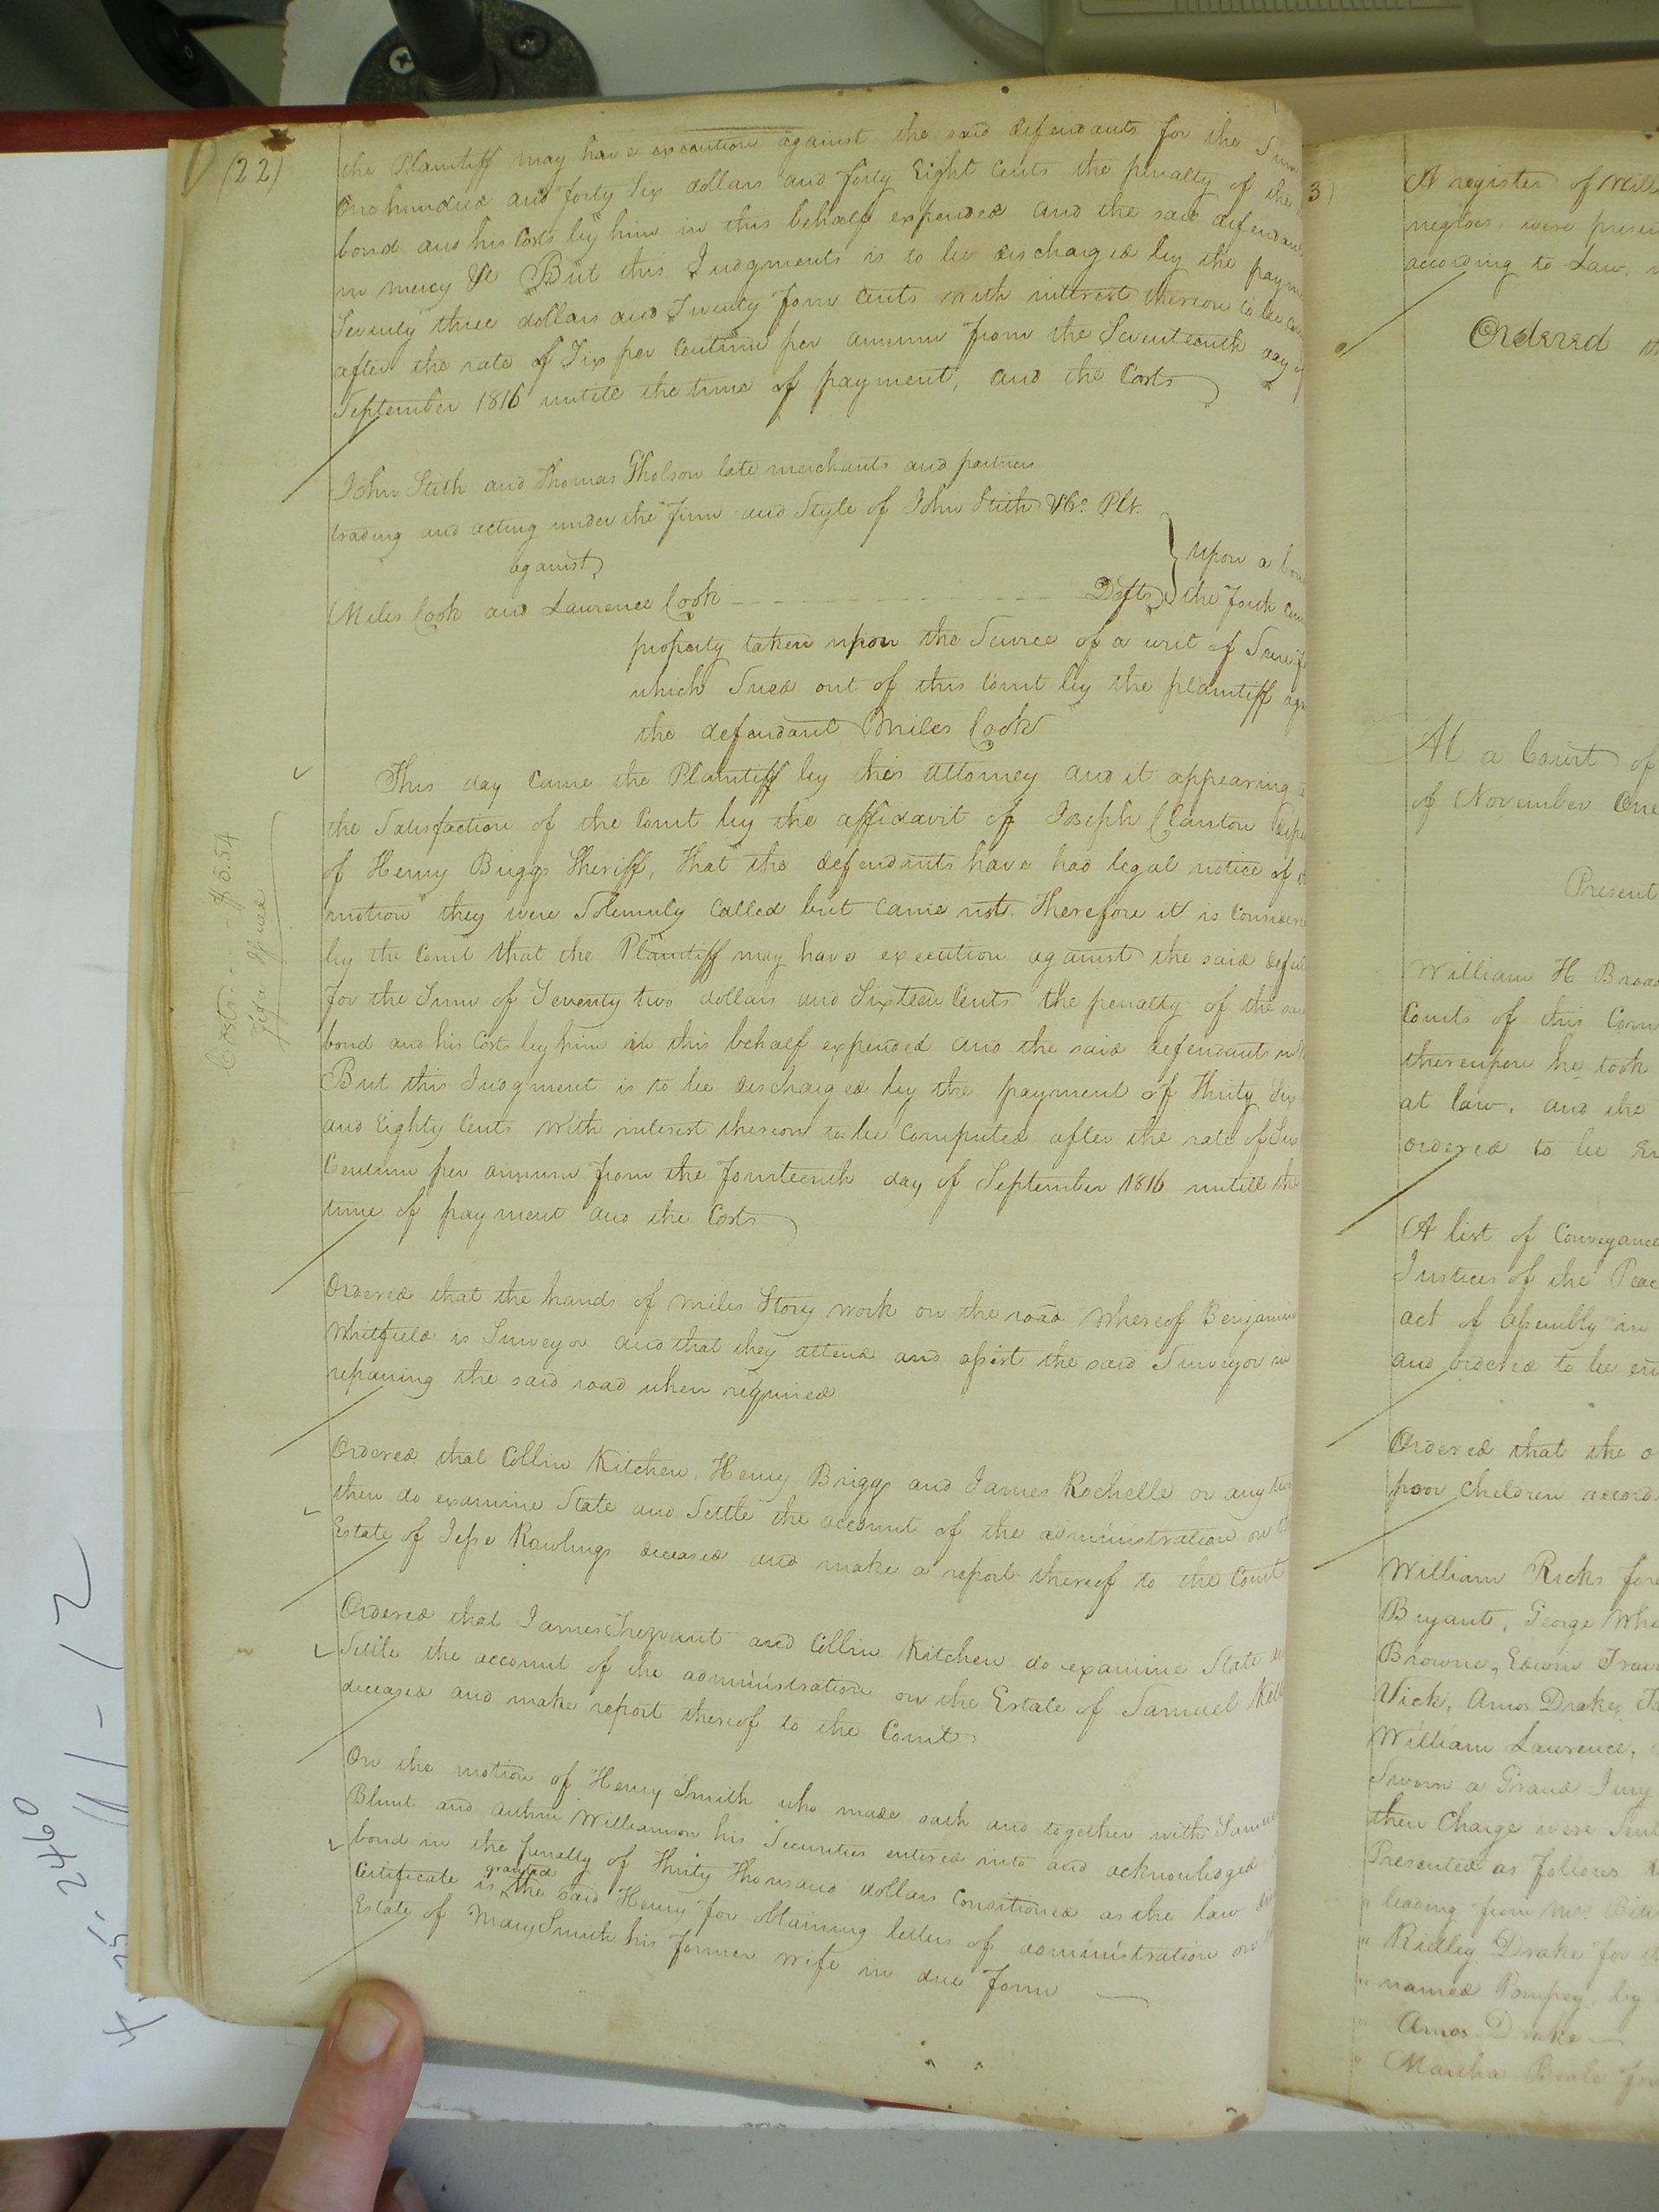 (22)
the Plaintiff may have execution against the said defendants for the Sum
One hundred and forty Six dollars and forty Eight Cents the penalty of the
bond and his Costs by him in this behalf expended and the said defendan
in mercy &c But this Judgments is to be discharged by the paym
Seventy three dollars and Twenty four Cents with interest thereon to be co
after the rate of Six per Centum per annum from the Seventeenth day of
September 1816 untill the time of payment, and the Costs
John Stith and Thomas Gholson late merchants and partners
trading and acting under the firm and Style of John Stith & Co. Plt.
against
Miles Cook and Laurence Cook Defts
upon a bon
the forth
property taken upon the Service of a writ of
which Sued out of this Court by the plaintiff aga
the defendant Miles Cook
This day Came the Plaintiff by their attorney and it appearing to
the Satisfaction of the Court by the affidavit of Joseph Clanton Depu
of Henry Briggs Sheriff, that the defendants have had legal notice of
motion they were Solemnly Called but Came not. Therefore it is Considere
by the Court that the Plaintiff may have execution against the said defen
for the Sum of Seventy two dollars and Sixteen Cents the penalty of the
bond and his Costs by him in this behalf expended and the said defendants
But this Judgment is to be discharged by the payment of thirty Six
and Eighty Cents with interest thereon to be Computed after the rate of Six
Centum per annum from the fourteenth day of September 1816 untill the
time of payment and the Costs
Costs $5.54
fifa
Ordered that the hands of Miles Story work on the road whereof Benjamin
Whitfield is Surveyor and that they attend and assist the said Surveyor in
repairing the said road when required
Ordered that Collin Kitchen, Henry Briggs and James Rochelle or any two
them do examine State and Settle the account of the administration on the
Estate of Jesse Rawlings deceased and make a report thereof to the Court
Ordered that James Trezvant and Collin Kitchen do examine State
Settle the account of the administration on the Estate of Samuel
deceased and make report thereof to the Court
On the motion of Henry Smith who made oath and together with Samuel
Blunt and Williamson his Securities entered into and acknowledged
bond in the penalty of Thirty Thousand dollars Conditioned as the law
Certificate is granted the said Henry for obtaining letters of administration on
Estate of Mary Smith his former wife in due form
3)
A register of
negroes, were presen
according to Law,
Ordered th
At a Court of
of November One
Present
William H
Courts of this Coun
thereupon he took
at law, and the
ordered to be
A list of Conveyance
Justices of the Peac
act of Assembly in
and ordered to be
Ordered that the
poor Children accord
William Ricks
Bryant, George
Browne, Edwin
Vick, Amos Drake,
William Lawrence,
Sworn a Grand Jury
their Charge were
Presented as follows
" leading from Mrs
" Ridley Drake for
" named Pompey, by
Amos Drake
" Martha
2460
11-12